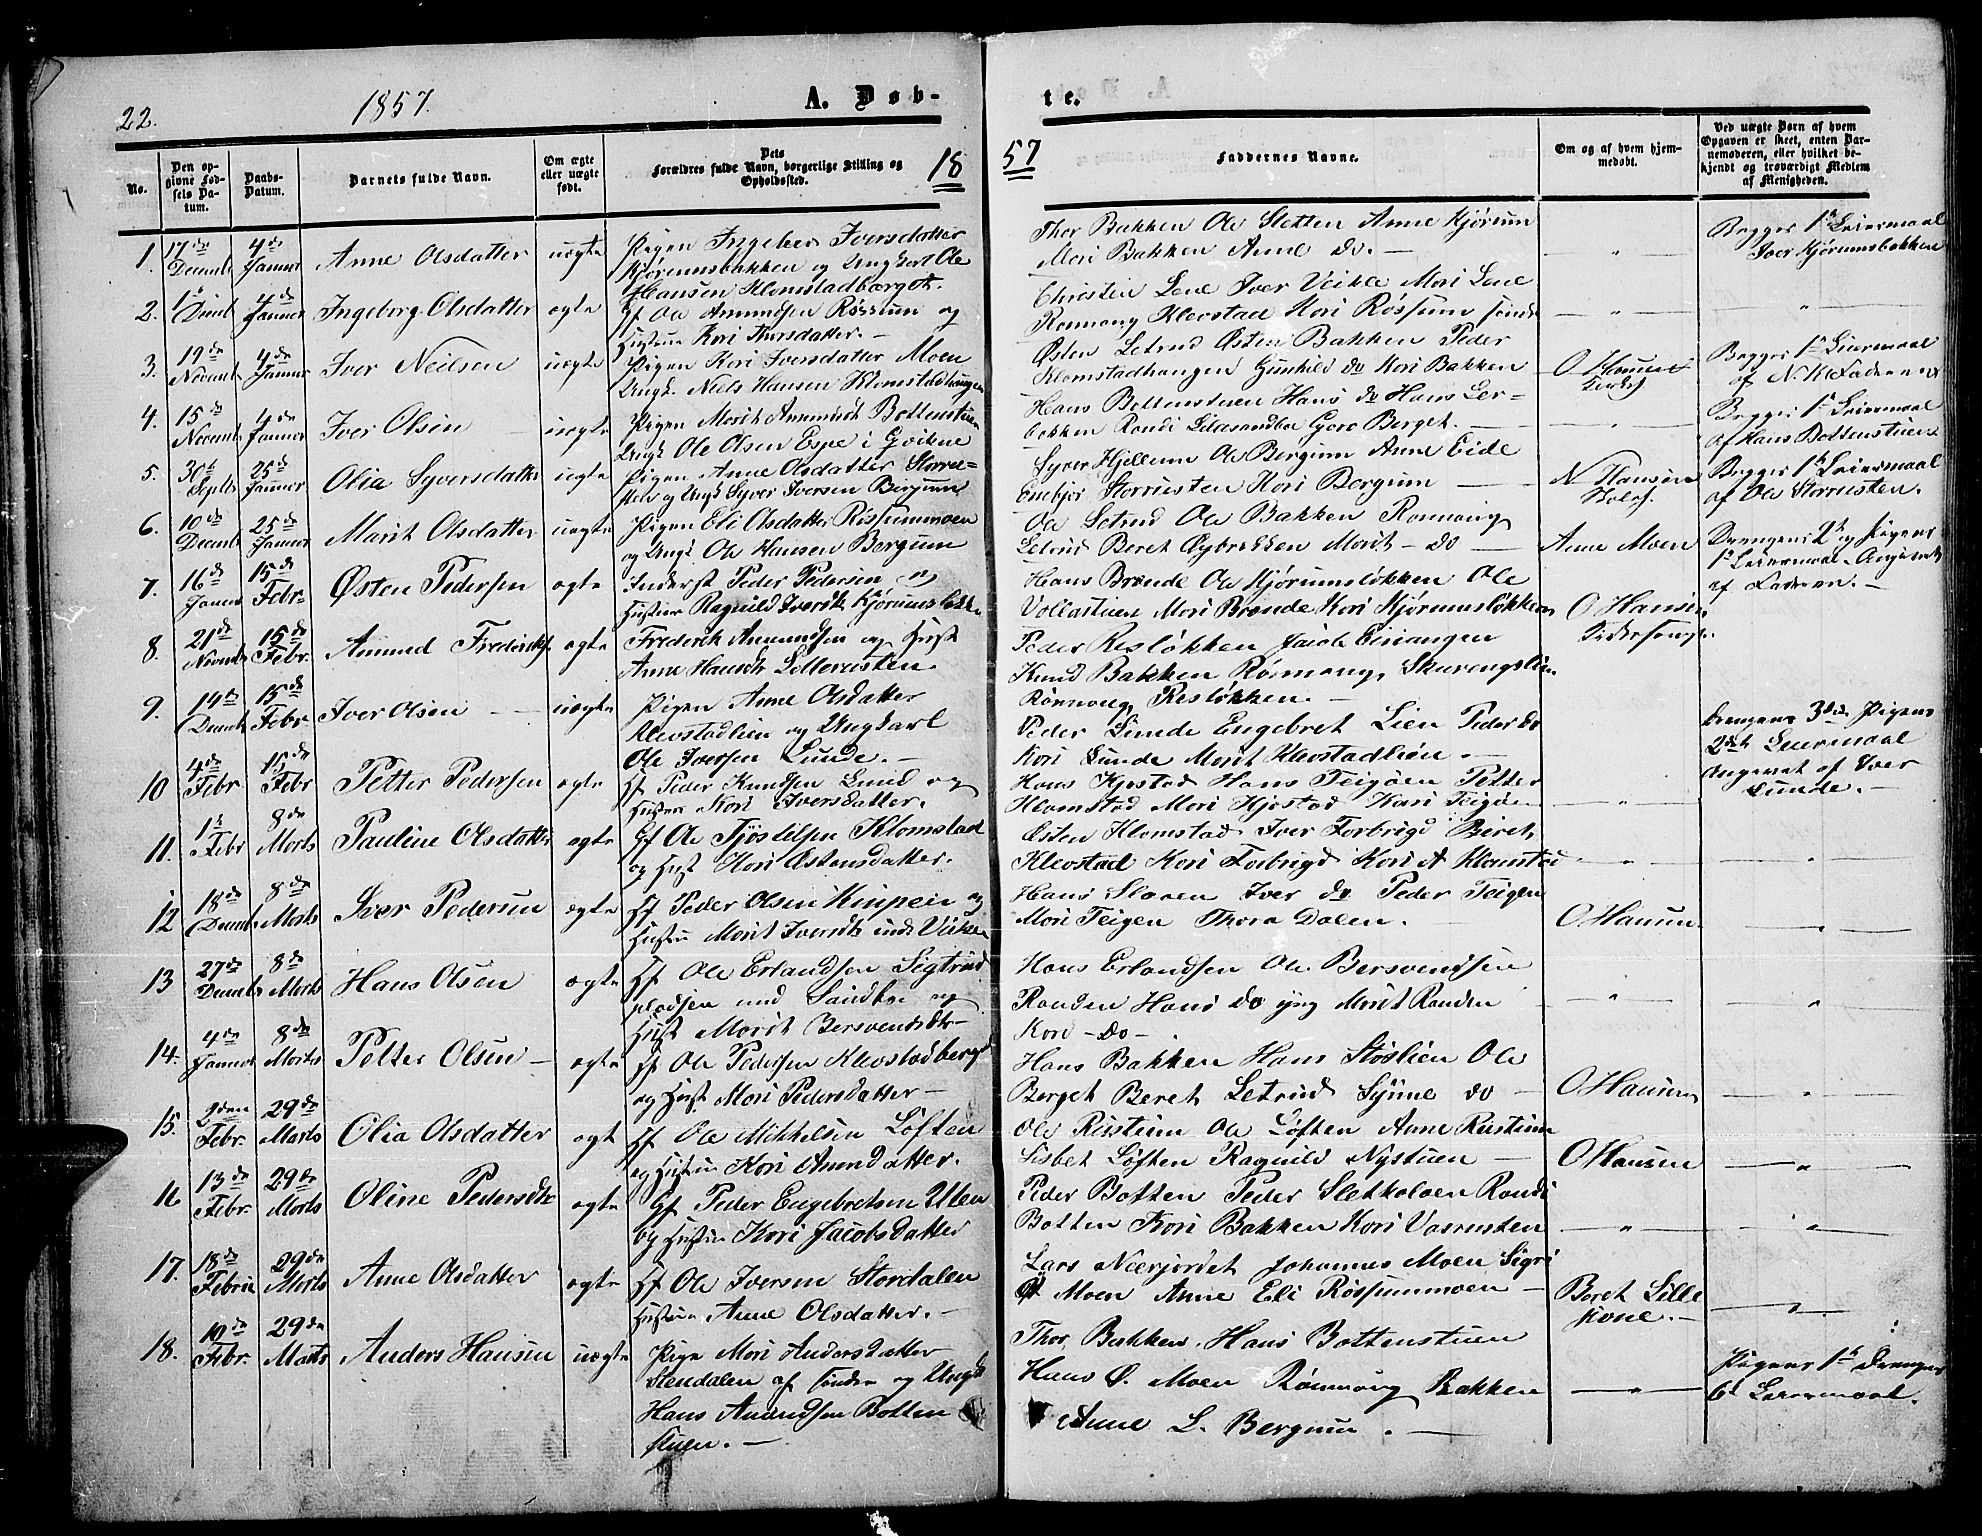 22. 1857. A. Døb-
te.
No.
Den opgivne Fødsels Datum.
Daabs-Datum.
Barnets fulde Navn.
Om ægte eller uægte født.
Dets Forældres fulde Navn, borgerlige Stilling og Opholdssted.
18
57
Faddernes Navne.
Om og af hvem hjemmedøbt.
Ved uægte Børn af hvem Opgaven er skeet, enten Barnemoderen, eller hvilket bekjendt og troværdigt Medlem af Menigheden.
1. 17de Decemb 4de Januar Anne Olsdatter uægte Pigen Ingeber Iversdatter
Kjørumsbakken og Ungkarl Ole
Hansen Klomstadberget.
Thor Bakken Ole Sletten Anne Kjørum
Mari Bakken Anne do. —
Begges 1ste Leiermaal
Iver Kjørumsbakken
2. 1ste Decmb 4de Januar Ingeborg Olsdatter ægte Gf Ole Amundsen Røssum og
Hustru Kari Thorsdatter. —
Christen Lene Iver Veikle Mari Lene
Rønnaug Klevstad Kari Røssum søndr — „ — „
3. 19de Novemb 4de Januar Iver Neilsen uægte Pigen Kari Iversdatter Moen
Ungk. Niels Hansen Klomstadhaugen
Østen Letrud Østen Bakken Peder
Klomstadhaugen Gunhild do Kari Bakken
O Hansen
Begges 1ste Leiermaal
af N. K. Faderen
4. 15de Novemb 4de Januar Iver Olsen — uægte Pigen Marit Amundsdt Bottenstuen
Ungk Ole Olsen Espe i Qvikne
Hans Bottenstuen Hans do Hans Ler-
bakken Rondi Lilasandbu Goro Berget. —
Begges 1ste Leiermaal
af Hans Bottenstuen
5. 30te Septb 25de Januar Olia Syversdatter uægte Pigen Anne Olsdatter Storru-
sten og Ungk Syver Iversen Bergum
Syver Hjellum Ole Bergum Anne Eide
Embjør Storrusten Kari Bergum —
N Hansen
Begges 1ste Leiermaal
af Ole Storrusten.
6. 10de Decemb 25de Januar Marit Olsdatter uægte Pigen Eli Olsdatter Røssummoen
og Ungk Ole Hansen Bergum
Ole Letrud Ole Bakken Rønnaug
Letrud Beret Øybrekken Marit — do —
Anne Moen
Drengens 2det og Pigens
1ste Leiermaal. Angivet
af Faderen. —
7. 16de Januar 15de Febr. Østen Pedersen ægte Inderst Peder Pedersen og
Hustru Ragnild Iversdt Kjørumsløkken
Hans Brænde Ole Kjørumsløkken Ole
Vollastuen Mari Brænde Kari Kjørumsløkken
O Hansen
8. 21de Novemb 15de Febr. Amund Frederiks. ægte Frederik Amundsen og Hust
Anne Hansdt Lillerusten.
Peder Resløkken Jacob Einangen
Knud Bakken Rønnaug Skurengslien
Rønnaug Resløkken. —
9. 14de Decmb 15de Febr Iver Olsen — uægte Pigen Anne Olsdatter
Klevstadlien og Ungkarl
Ole Iversen Lunde. —
Peder Lunde Engebret Lien Peder do
Kari Lunde Marit Klevstadlien —
Drengens 3die Pigens
2det Leiermaal
Angivet af Iver
Lunde. —
10 4de Febr 15de Febr Petter Pedersen ægte Gf Peder Knudsen Lund og
Hustru Kari Iversdatter.
Hans Kjostad Hans Teigen Petter
Klomstad Mari Kjostad Kari Teigen — „ —
11. 1ste Febr 8de Marts Pauline Olsdatter ægte Gf Ole Tjøstelsen Klomstad
og Hust Kari Østensdatter.
Østen Klomstad Iver Forbrigd Beret
Klevstad Kari Forbrigd Kari A Klomstad — „ — „ —
12 18de Decmb 8de Marts Iver Pedersen ægte Gf Peder Olsen Kinpein og
Hustru Marit Iversdt
Hans Slaaen Iver do Peder Teigen
Mari Teigen Thora Dalen. — O Hansen — „ —
13 27de Decmb 8de Marts Hans Olsen ægte Gf Ole Erlandsen Sigtrud
pladsen und Sandbu og
Hust Marit Bersvendsdt —
Hans Erlandsen Ole Bersvendsen
Randen Hans do yng Marit Randen
Kari — Do —
14. 4de Januar 8de Marts Petter Olsen — ægte Gf Ole Pedersen Klevstadberget
og Hust Mari Pedersdatter —
Hans Bakken Hans Støslien Ole
Berget Beret Letrud Synne do — O Hansen — „ —
15. 2den Febr. 29de Marts Olia Olsdatter ægt Gf Ole Mikkelsen Løften
og Hustru Kari Amundsdatter.
Ole Rustum Ole Løften Anne Rustum
Lisbet Løften Ragnild Nystuen — O Hansen — „ —
16 13de Febr. 29de Marts Oline Pedersdt ægte Gf Peder Engebretsen Ulen
og Hustru Kari Jacobsdatter
Peder Botten Peder Sletkoloen Rondi
Botten Kari Bakken Kari Vasrusten — „ — „ —
17. 18de Februa 29de Marts Anne Olsdatter ægte Gf Ole Iversen Stordalen
Hustru Anne Olsdatter. —
Lars Nerjordet Johannes Moen Sigri
Moen Anne Eli Røssummoen — Beret Lille
kone. — „ —
18. 10de Febr. 29de Marts Anders Hansen uægte Pige Mari Andersdatter
Stendalen af Søndre og Ungk
Hans Amundsen Botten
stuen. —
Thor Bakken Hans Bottenstuen
Hans Ø. Moen Rønnaug Bakken — „ —
Anne L. Bergum. —
Pigens 1ste Drengens
6te Leiermaal.